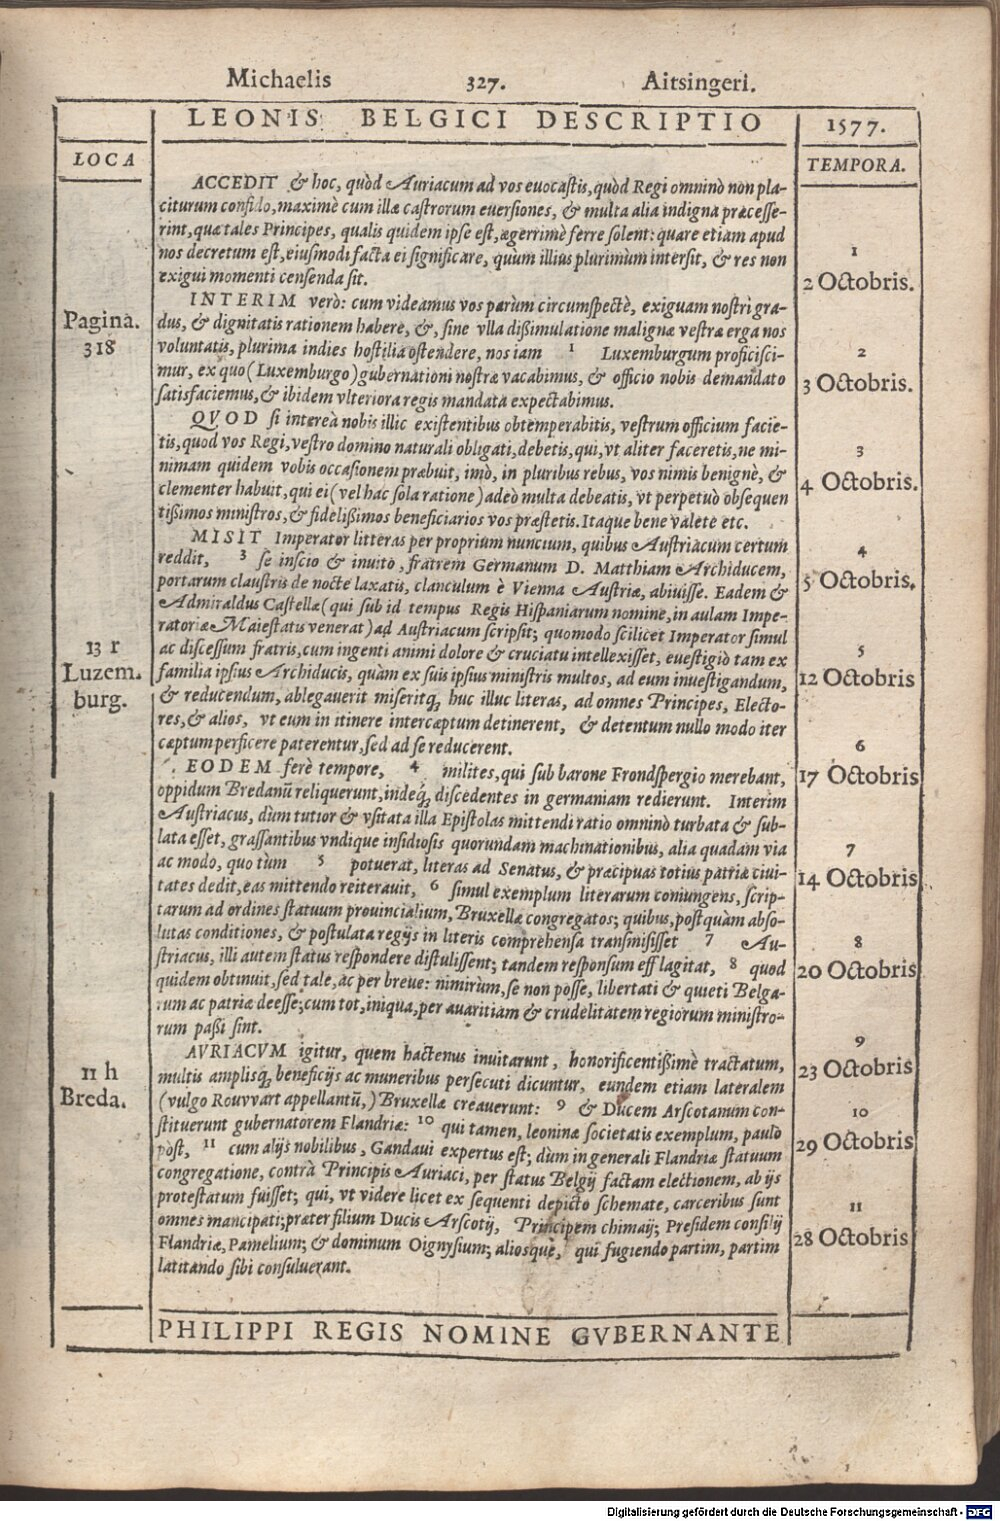 Michaelis 327. Aitsingeri.
LEONIS BELGICI DESCRIPTIO
1577.
LOCA
TEMPORA.
ACCEDIT & hoc, quòd Auriacum ad vos euocastis, quòd Regi omninò non pla-
citurum confido, maximè cum illæ castrorum euersiones, & multa alia indigna præcesse-
rint, quæ tales Principes, qualis quidem ipse est, ægerrimè ferre solent: quare etiam apud
nos decretum est, eiusmodi facta ei significare, quùm illius plurimùm intersit, & res non
exigui momenti censenda sit.
INTERIM verò: cum videamus vos parùm circumspectè, exiguam nostri gra-
dus, & dignitatis rationem habere, &, sine vlla dißimulatione malignæ vestræ erga nos
voluntatis, plurima indies hostilia ostendere, nos iam 1 Luxemburgum proficisci-
mur, ex quo (Luxemburgo) gubernationi nostræ vacabimus, & officio nobis demandato
satisfaciemus, & ibidem vlteriora regis mandata expectabimus.
QVOD si intereà nobis illic existentibus obtemperabitis, vestrum officium facie-
tis, quod vos Regi, vestro domino naturali obligati, debetis, qui, vt aliter faceretis, ne mi-
nimam quidem vobis occasionem præbuit, imò, in pluribus rebus, vos nimis benignè, &
clementer habuit, qui ei (vel hac sola ratione) adeò multa debeatis, vt perpetuò obsequen
tißimos ministros, & fidelißimos beneficiarios vos præstetis. Itaque bene valete etc.
MISIT Imperator litteras per proprium nuncium, quibus Austriacum certum
reddit, 3 se inscio & inuito, fratrem Germanum D. Matthiam Archiducem,
portarum claustris de nocte laxatis, clanculum è Vienna Austriæ, abiuisse. Eadem &
Admiraldus Castellæ (qui sub id tempus Regis Hispaniarum nomine, in aulam Impe-
ratoriæ Maiestatis venerat) ad Austriacum scripsit; quomodo scilicet Imperator simul
ac discessum fratris, cum ingenti animi dolore & cruciatu intellexisset, euestigiò tam ex
familia ipsius Archiducis, quàm ex suis ipsius ministris multos, ad eum inuestigandum,
& reducendum, ablegauerit miseritq́ huc illuc literas, ad omnes Principes, Electo-
res, & alios, vt eum in itinere interceptum detinerent, & detentum nullo modo iter
cœptum perficere paterentur, sed ad se reducerent.
EODEM ferè tempore, 4 milites, qui sub barone Frondspergio merebant,
oppidum Bredanũ reliquerunt, indeq́ discedentes in germaniam redierunt. Interim
Austriacus, dùm tutior & vsitata illa Epistolas mittendi ratio omninò turbata & sub-
lata esset, grassantibus vndique insidiosis quorundam machinationibus, alia quadam via
ac modo, quo tùm 5 potuerat, literas ad Senatus, & præcipuas totius patriæ ciui-
tates dedit, eas mittendo reiterauit, 6 simul exemplum literarum coniungens, scrip-
tarum ad ordines statuum prouincialium, Bruxellæ congregatos; quibus, postquàm abso-
lutas conditiones, & postulata regijs in literis comprehensa transmisisset 7 Au-
striacus, illi autem status respondere distulissent; tandem responsum efflagitat, 8 quod
quidem obtinuit, sed tale, ac per breue: nimirùm, se non posse, libertati & quieti Belga-
rum ac patriæ deesse; cum tot, iniqua, per auaritiam & crudelitatem regiorum ministro-
rum paßi sint.
AVRIACVM igitur, quem hactenus inuitarunt, honorificentißimè tractatum,
multis amplisq́ beneficijs ac muneribus persecuti dicuntur, eundem etiam lateralem
(vulgo Rouvvart appellantũ,) Bruxellæ creauerunt: 9 & Ducem Arscotanum con-
stituerunt gubernatorem Flandriæ: 10 qui tamen, leoninæ societatis exemplum, paulò
pòst, 11 cum alijs nobilibus, Gandaui expertus est; dùm in generali Flandriæ statuum
congregatione, contrà Principis Auriaci, per status Belgij factam electionem, ab ijs
protestatum fuisset; qui, vt videre licet ex sequenti depicto schemate, carceribus sunt
omnes mancipati; præter filium Ducis Arscotij, Principem chimaij; Presidem consilij
Flandriæ, Pamelium; & dominum Oignysium; aliosquè, qui fugiendo partim, partim
latitando sibi consuluerant.
PHILIPPI REGIS NOMINE GVBERNANTE
Pagina.
318
13 r
Luzem.
burg.
11 h
Breda.
1
2 Octobris.
2
3 Octobris.
3
4 Octobris.
4
5 Octobris.
5
12 Octobris
6
17 Octobris
7
14 Octobris
8
20 Octobris
9
23 Octobris
10
29 Octobris
11
28 Octobris
Digitalisierung gefördert durch die Deutsche Forschungsgemeinschaft - DFG